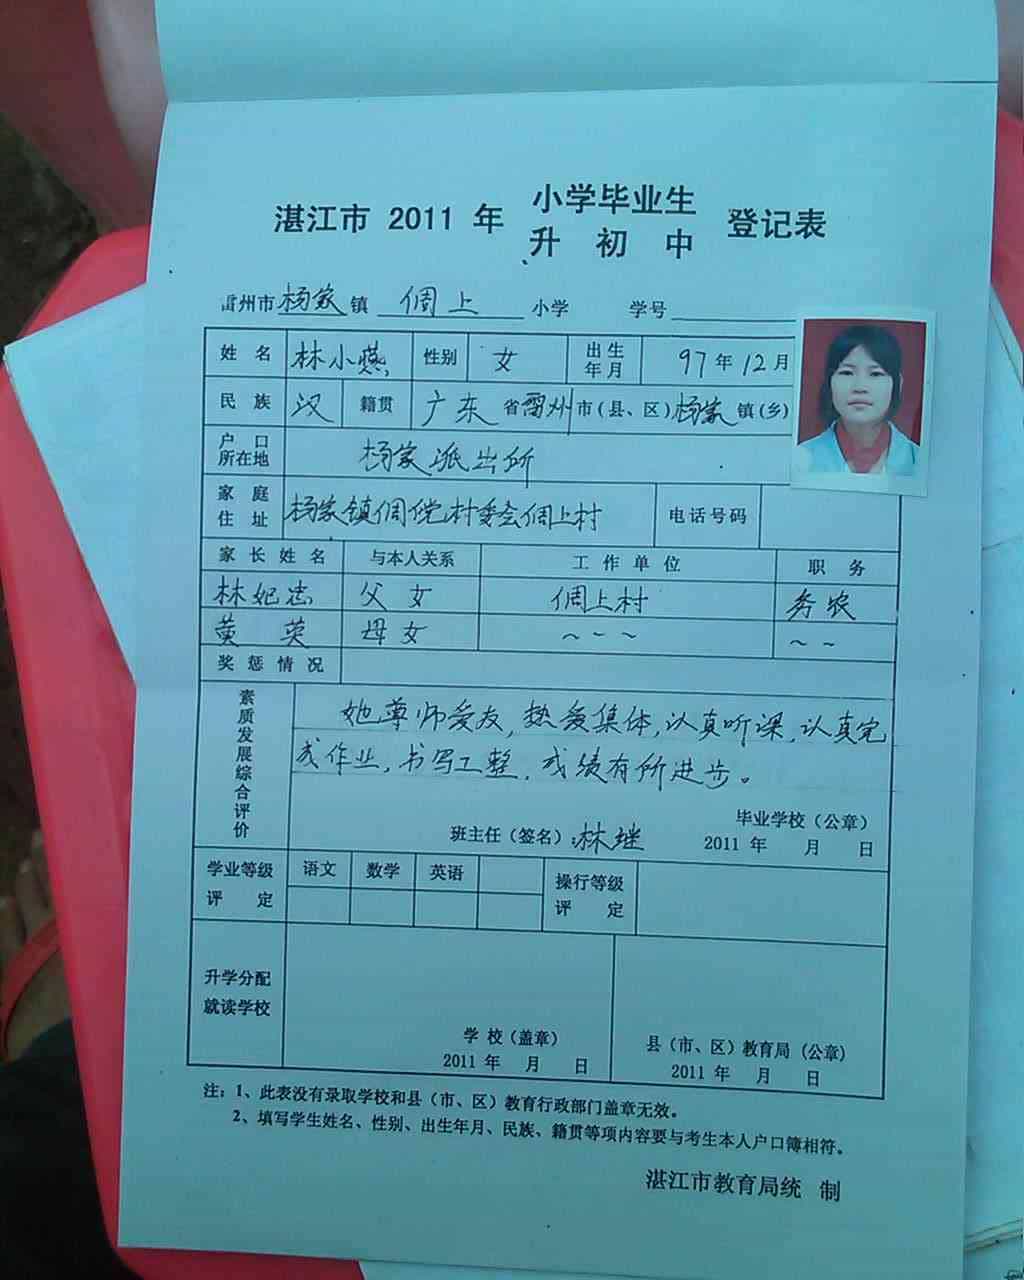 湛江市 2011 年 小学毕业生 升初中 登记表
雷州市 杨家 镇 倜上 小学 学号
姓名 林小燕 性别 女 出生年月 97 年 12 月
民族 汉 籍贯 广东 省 雷州 市(县、区) 杨家 镇(乡)
户口所在地 杨家派出所
家庭住址 杨家镇 村委会倜上村 电话号码
家长姓名 与本人关系 工作单位 职务
林妃忠 父女 倜上村 务农
黄英 母女 ~ ~ ~ ~ ~
奖惩情况
素质发展综合评价
她尊师爱友,热爱集体,认真听课,认真完
成作业,书写工整,成绩有所进步。
毕业学校(公章)
班主任(签名): 林继 2011 年 月 日
学业等级评定 语文 数学 英语 操行等级评定
升学分配就读学校
学校(盖章) 县(市、区)教育局(公章)
2011 年 月 日 2011 年 月 日
注:1、此表没有录取学校和县(市、区)教育行政部门盖章无效。
2、填写学生姓名、性别、出生年月、民族、籍贯等项内容要与考生本人户口簿相符。
湛江市教育局统 制